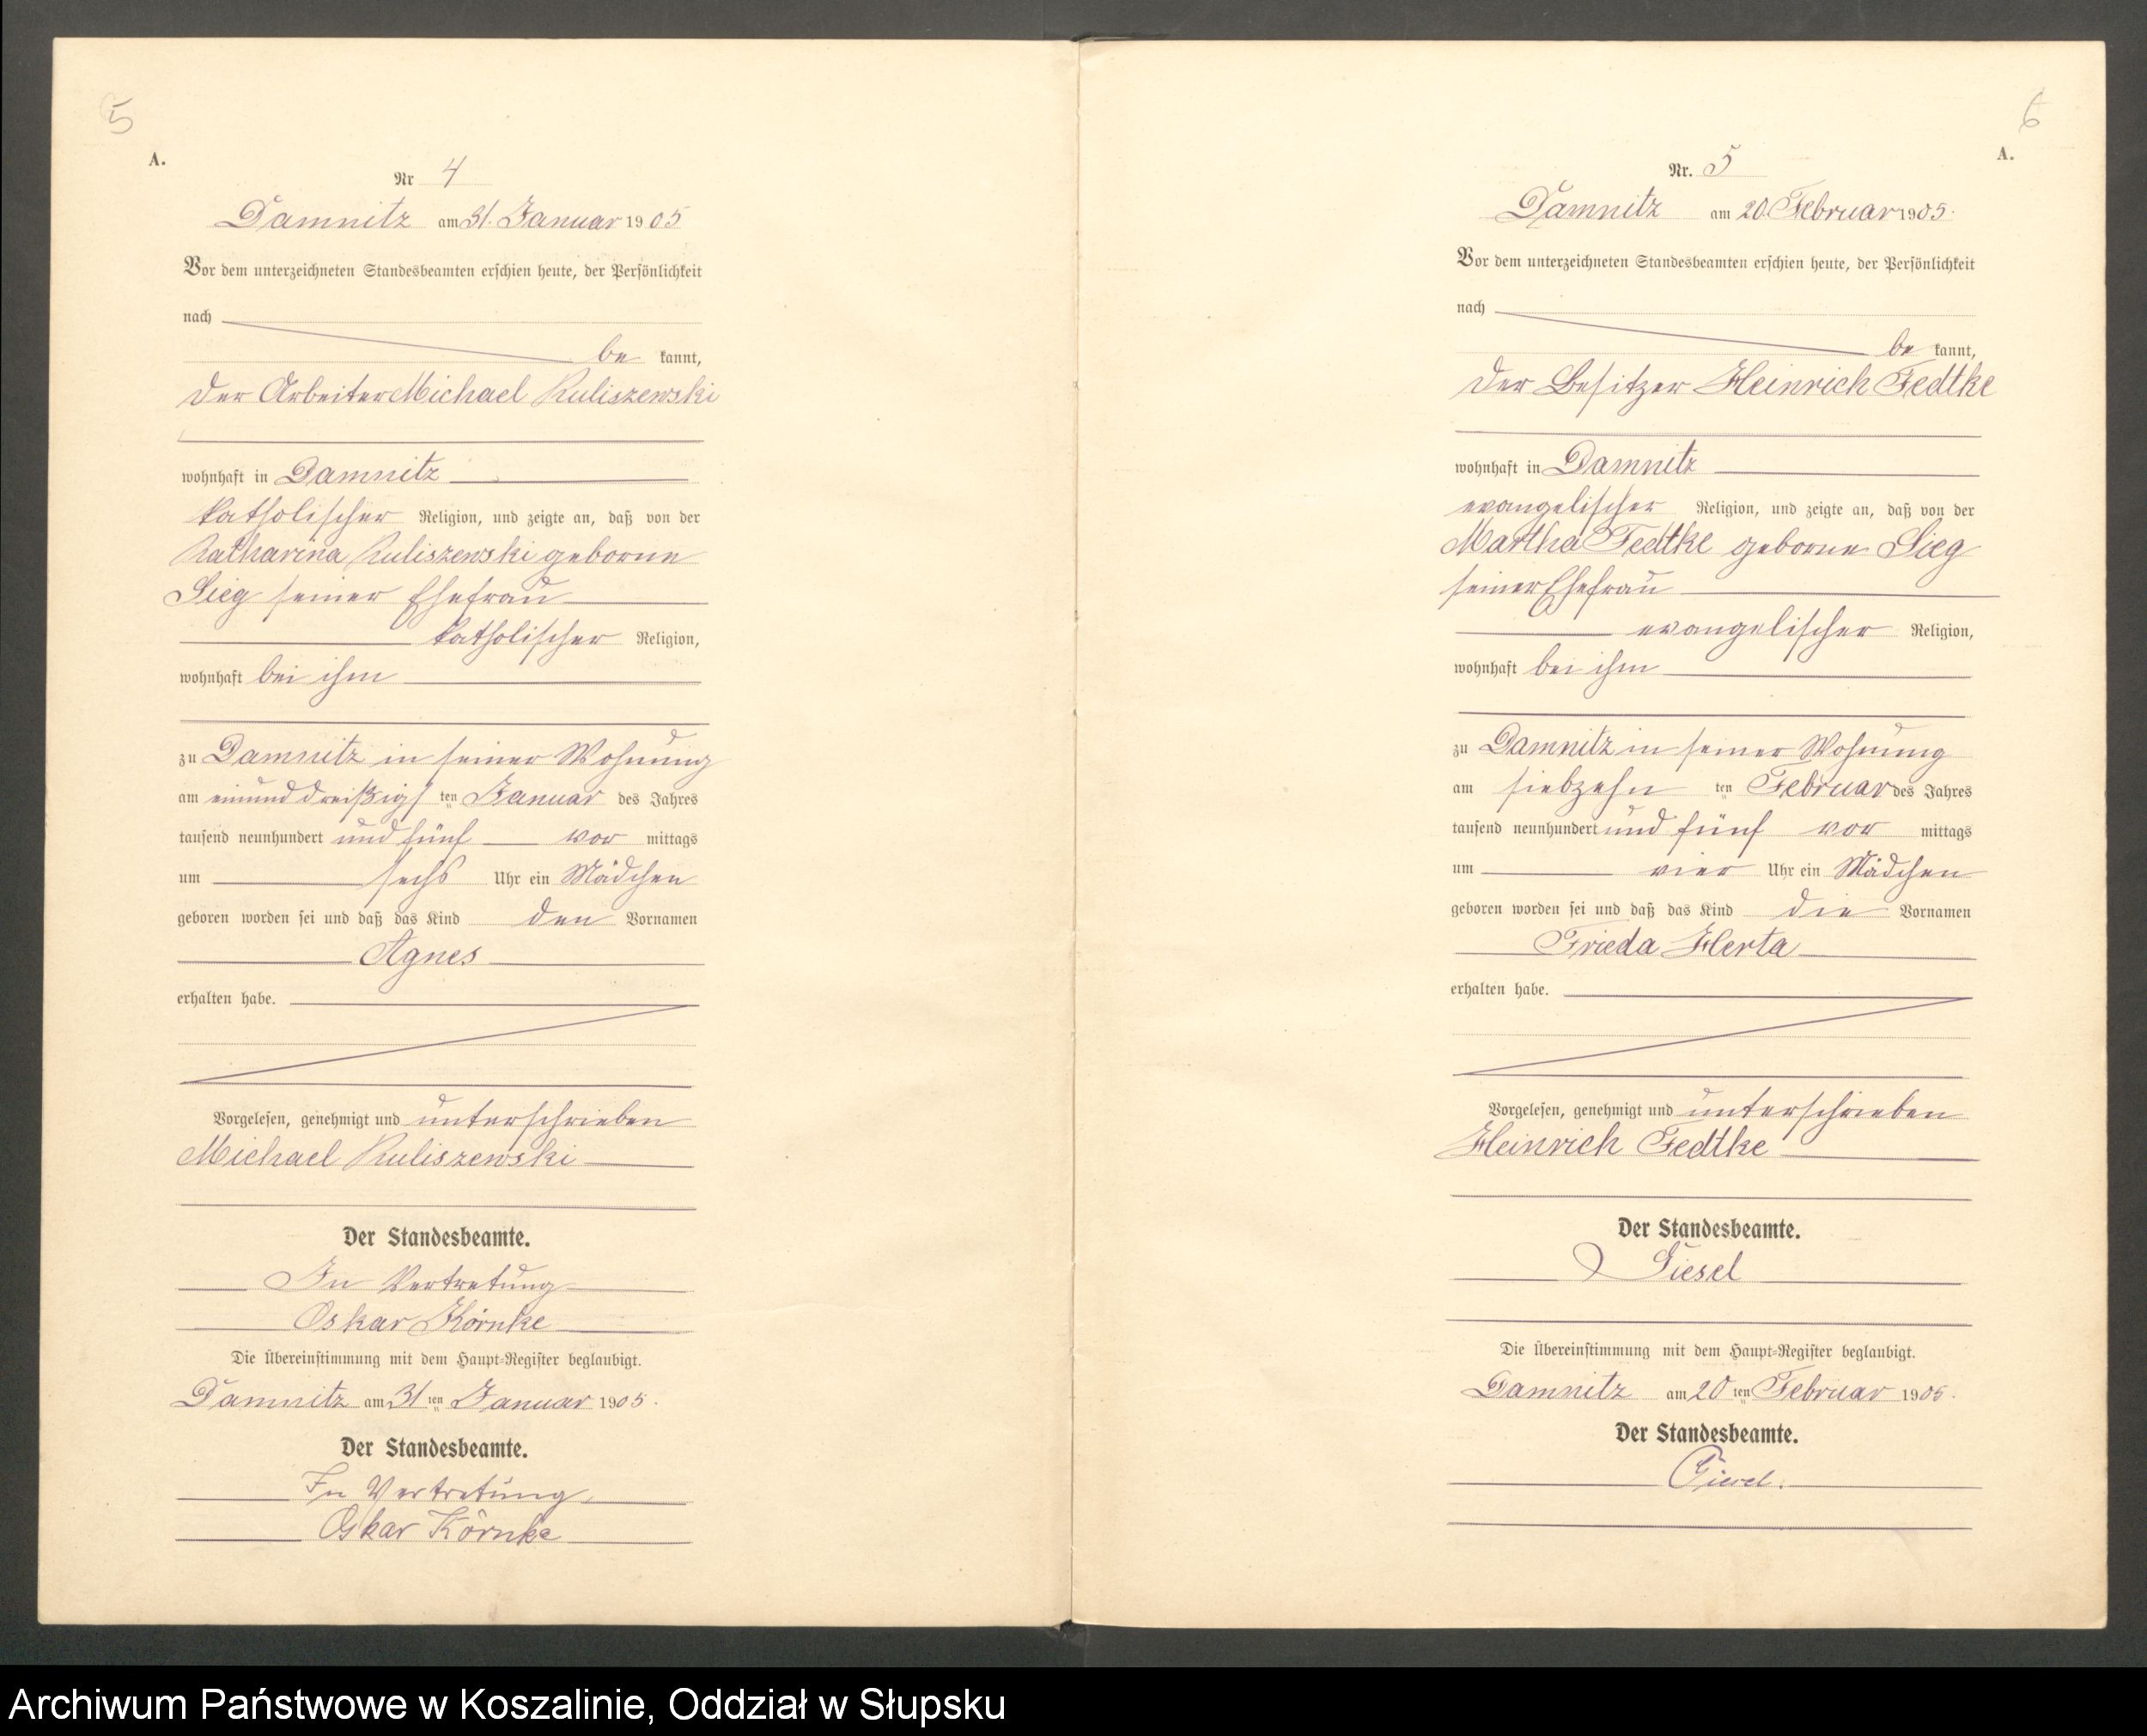 5
A.
Nr 4
Damnitz am 31. Januar 1905
Vor dem unterzeichneten Standesbeamten erschien heute, der Persönlichkeit
nach
be kannt,
der Arbeiter Michael Kuliszewski
wohnhaft in Damnitz
katholischer Religion, und zeigte an, daß von der
Katharina Kuliszewski geborne
Sieg seiner Ehefrau
katholischer Religion,
wohnhaft bei ihm
zu Damnitz in seiner Wohnung
am einunddreißigsten Januar des Jahres
tausend neunhundert und fünf vor mittags
um sechs Uhr ein Mädchen
geboren worden sei und daß das Kind den Vornamen
Agnes
erhalten habe.
Vorgelesen, genehmigt und unterschrieben
Michael Kuliszewski
Der Standesbeamte.
In Vertretung
Oskar Körnke
Die Übereinstimmung mit dem Haupt-Register beglaubigt.
Damnitz am 31 ten Januar 1905.
Der Standesbeamte.
In Vertretung
Oskar Körnke
6
A.
Nr. 5
Damnitz am 20. Februar 1905.
Vor dem unterzeichneten Standesbeamten erschien heute, der Persönlichkeit
nach
be kannt,
der Besitzer Heinrich Fedtke
wohnhaft in Damnitz
evangelischer Religion, und zeigte an, daß von der
Martha Fedtke geborne Sieg
seiner Ehefrau
evangelischer Religion,
wohnhaft bei ihm
zu Damnitz in seiner Wohnung
am siebzehn ten Februar des Jahres
tausend neunhundert und fünf vor mittags
um vier Uhr ein Mädchen
geboren worden sei und daß das Kind die Vornamen
Frieda Herta
erhalten habe.
Vorgelesen, genehmigt und unterschrieben
Heinrich Fedtke
Der Standesbeamte.
Giesel
Die Übereinstimmung mit dem Haupt-Register beglaubigt.
Damnitz am 20 ten Februar 1905.
Der Standesbeamte.
Giesel.
Archiwum Państwowe w Koszalinie, Oddział w Słupsku